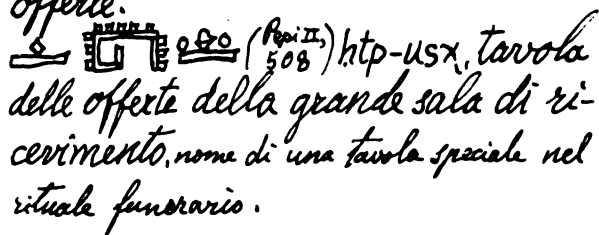 offerte.
(Pepi II, 508) htp-usx, tavola
delle offerte della grande sala di ri-
cevimento, nome di una tavola speciale nel
rituale funerario.